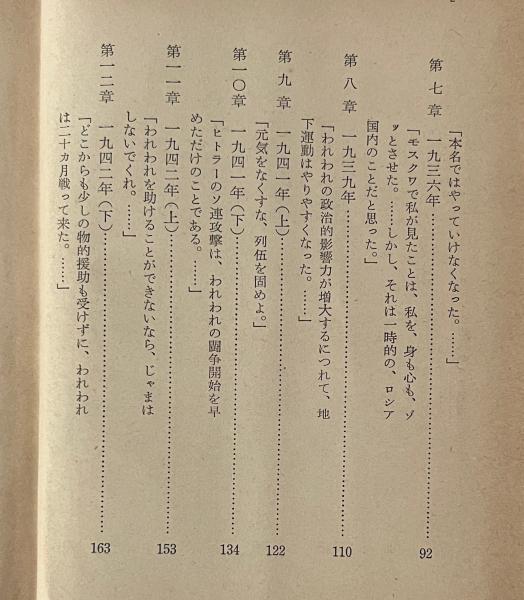 「本名ではやっていけなくなった。……」
第七章 一九三六年……………………92
「モスクワで私が見たことは、私を、身も心も、ゾ
ッとさせた。……しかし、それは一時的の、ロシア
国内のことだと思った。」
第八章 一九三九年……………………110
「われわれの政治的影響力が増大するにつれて、地
下運動はやりやすくなった。……」
第九章 一九四一年(上)……………………122
「元気をなくすな、列伍を固めよ。」
第一〇章 一九四一年(下)……………………134
「ヒトラーのソ連攻撃は、われわれの闘争開始を早
めただけのことである。……」
第一一章 一九四二年(上)……………………153
「われわれを助けることができないなら、じゃまは
しないでくれ。……」
第一二章 一九四二年(下)……………………163
「どこからも少しの物的援助も受けずに、われわれ
は二十カ月戦って来た。……」